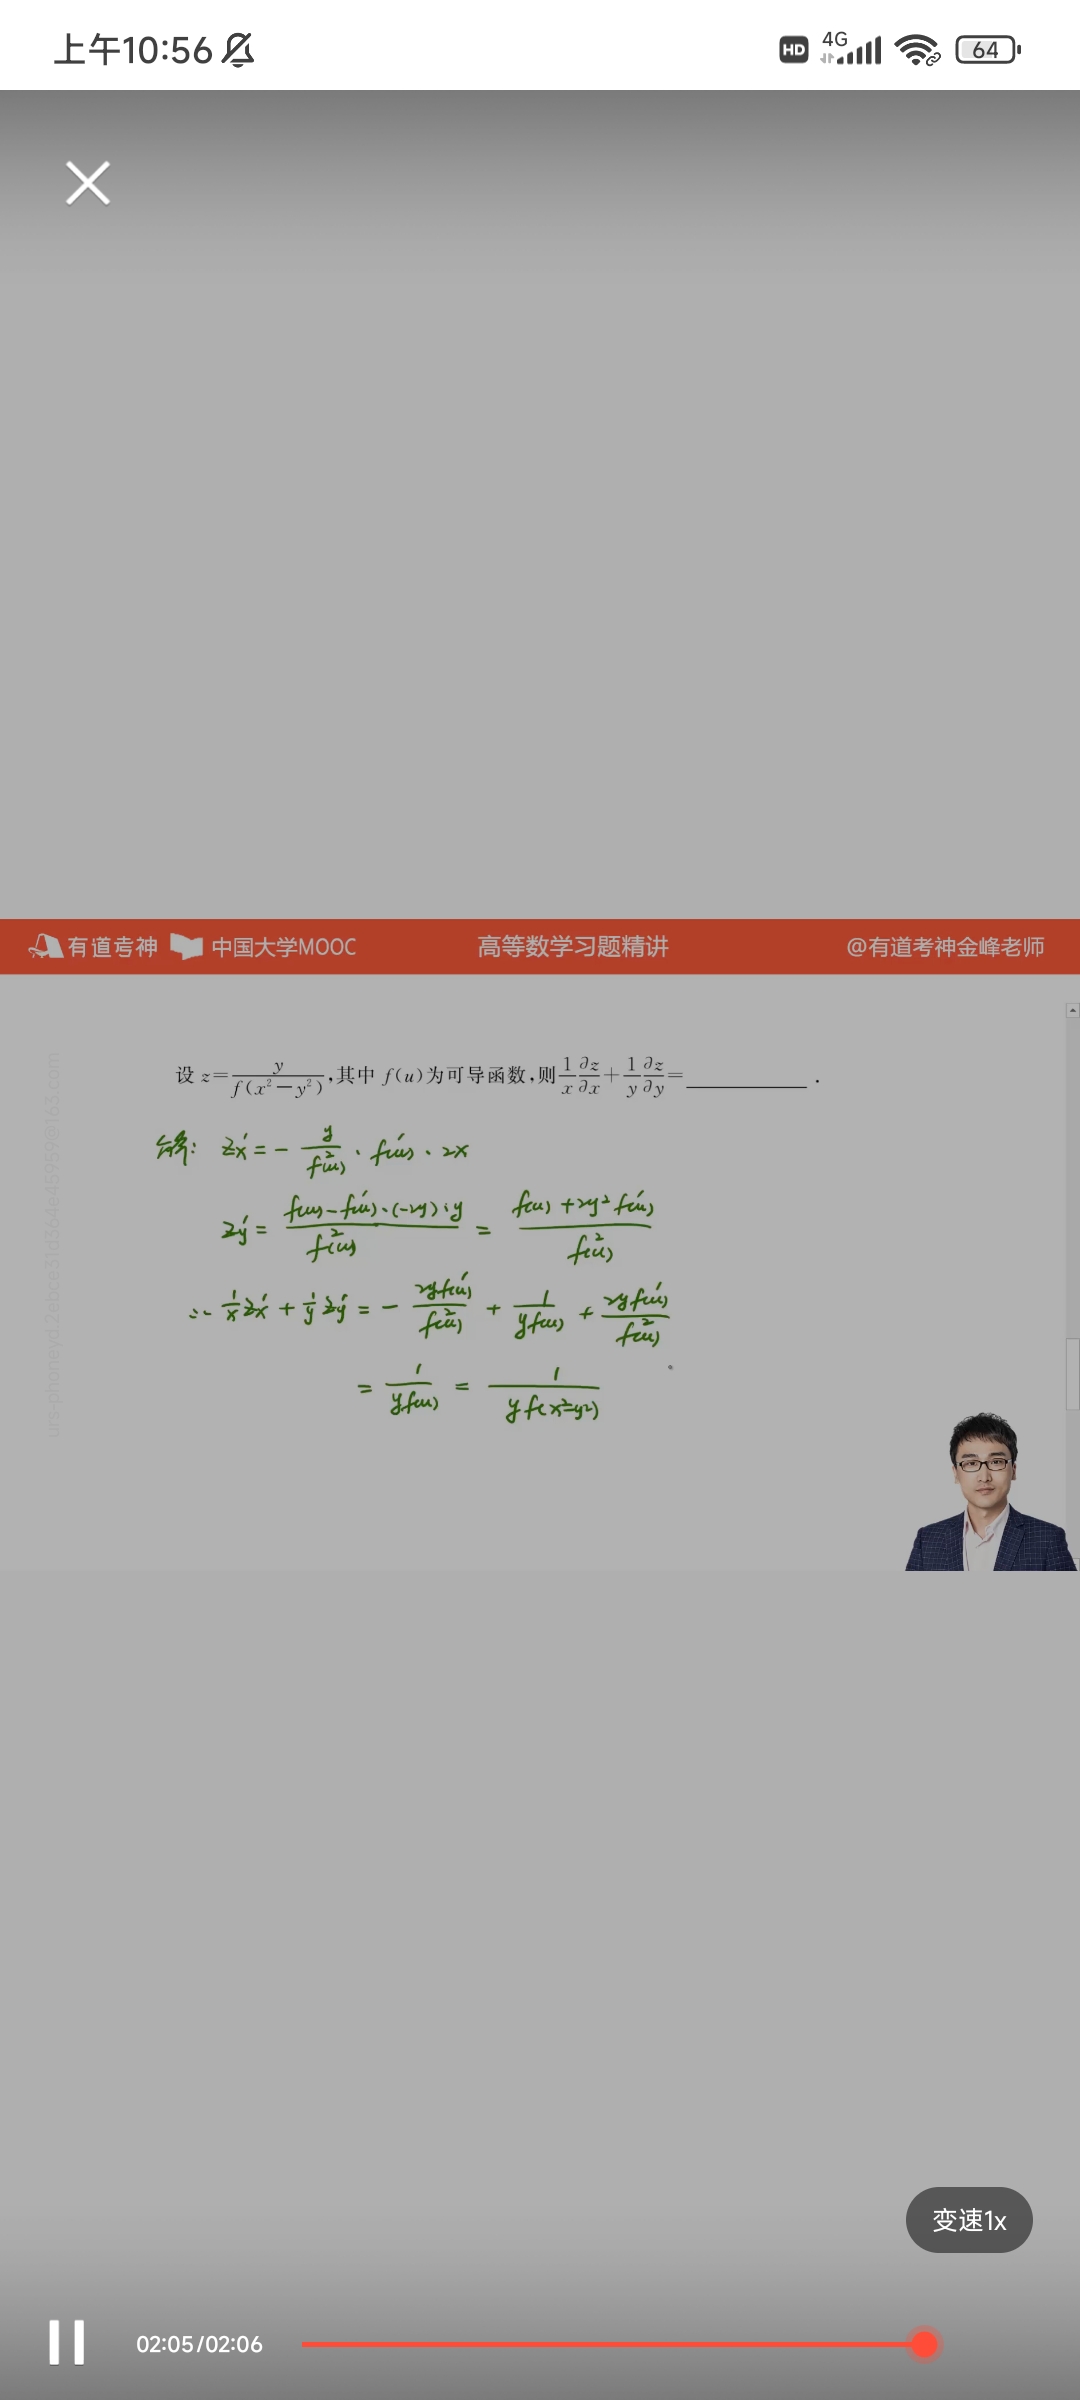 上午10:56 HD 4G 64
有道考神 中国大学MOOC 高等数学习题精讲 @有道考神金峰老师
设 z=y/f(x²-y²),其中 f(u)为可导函数,则 1/x ∂z/∂x + 1/y ∂z/∂y = ________ .
解: z'x = - y/f²(u) · f'(u) · 2x
z'y = (f(u) - f'(u)·(-2y)·y)/f²(u) = (f(u) + 2y² f'(u))/f²(u)
∴ 1/x z'x + 1/y z'y = - 2yf'(u)/f²(u) + 1/yf(u) + 2yf'(u)/f²(u)
= 1/yf(u) = 1/yf(x²-y²)
变速1x
02:05/02:06